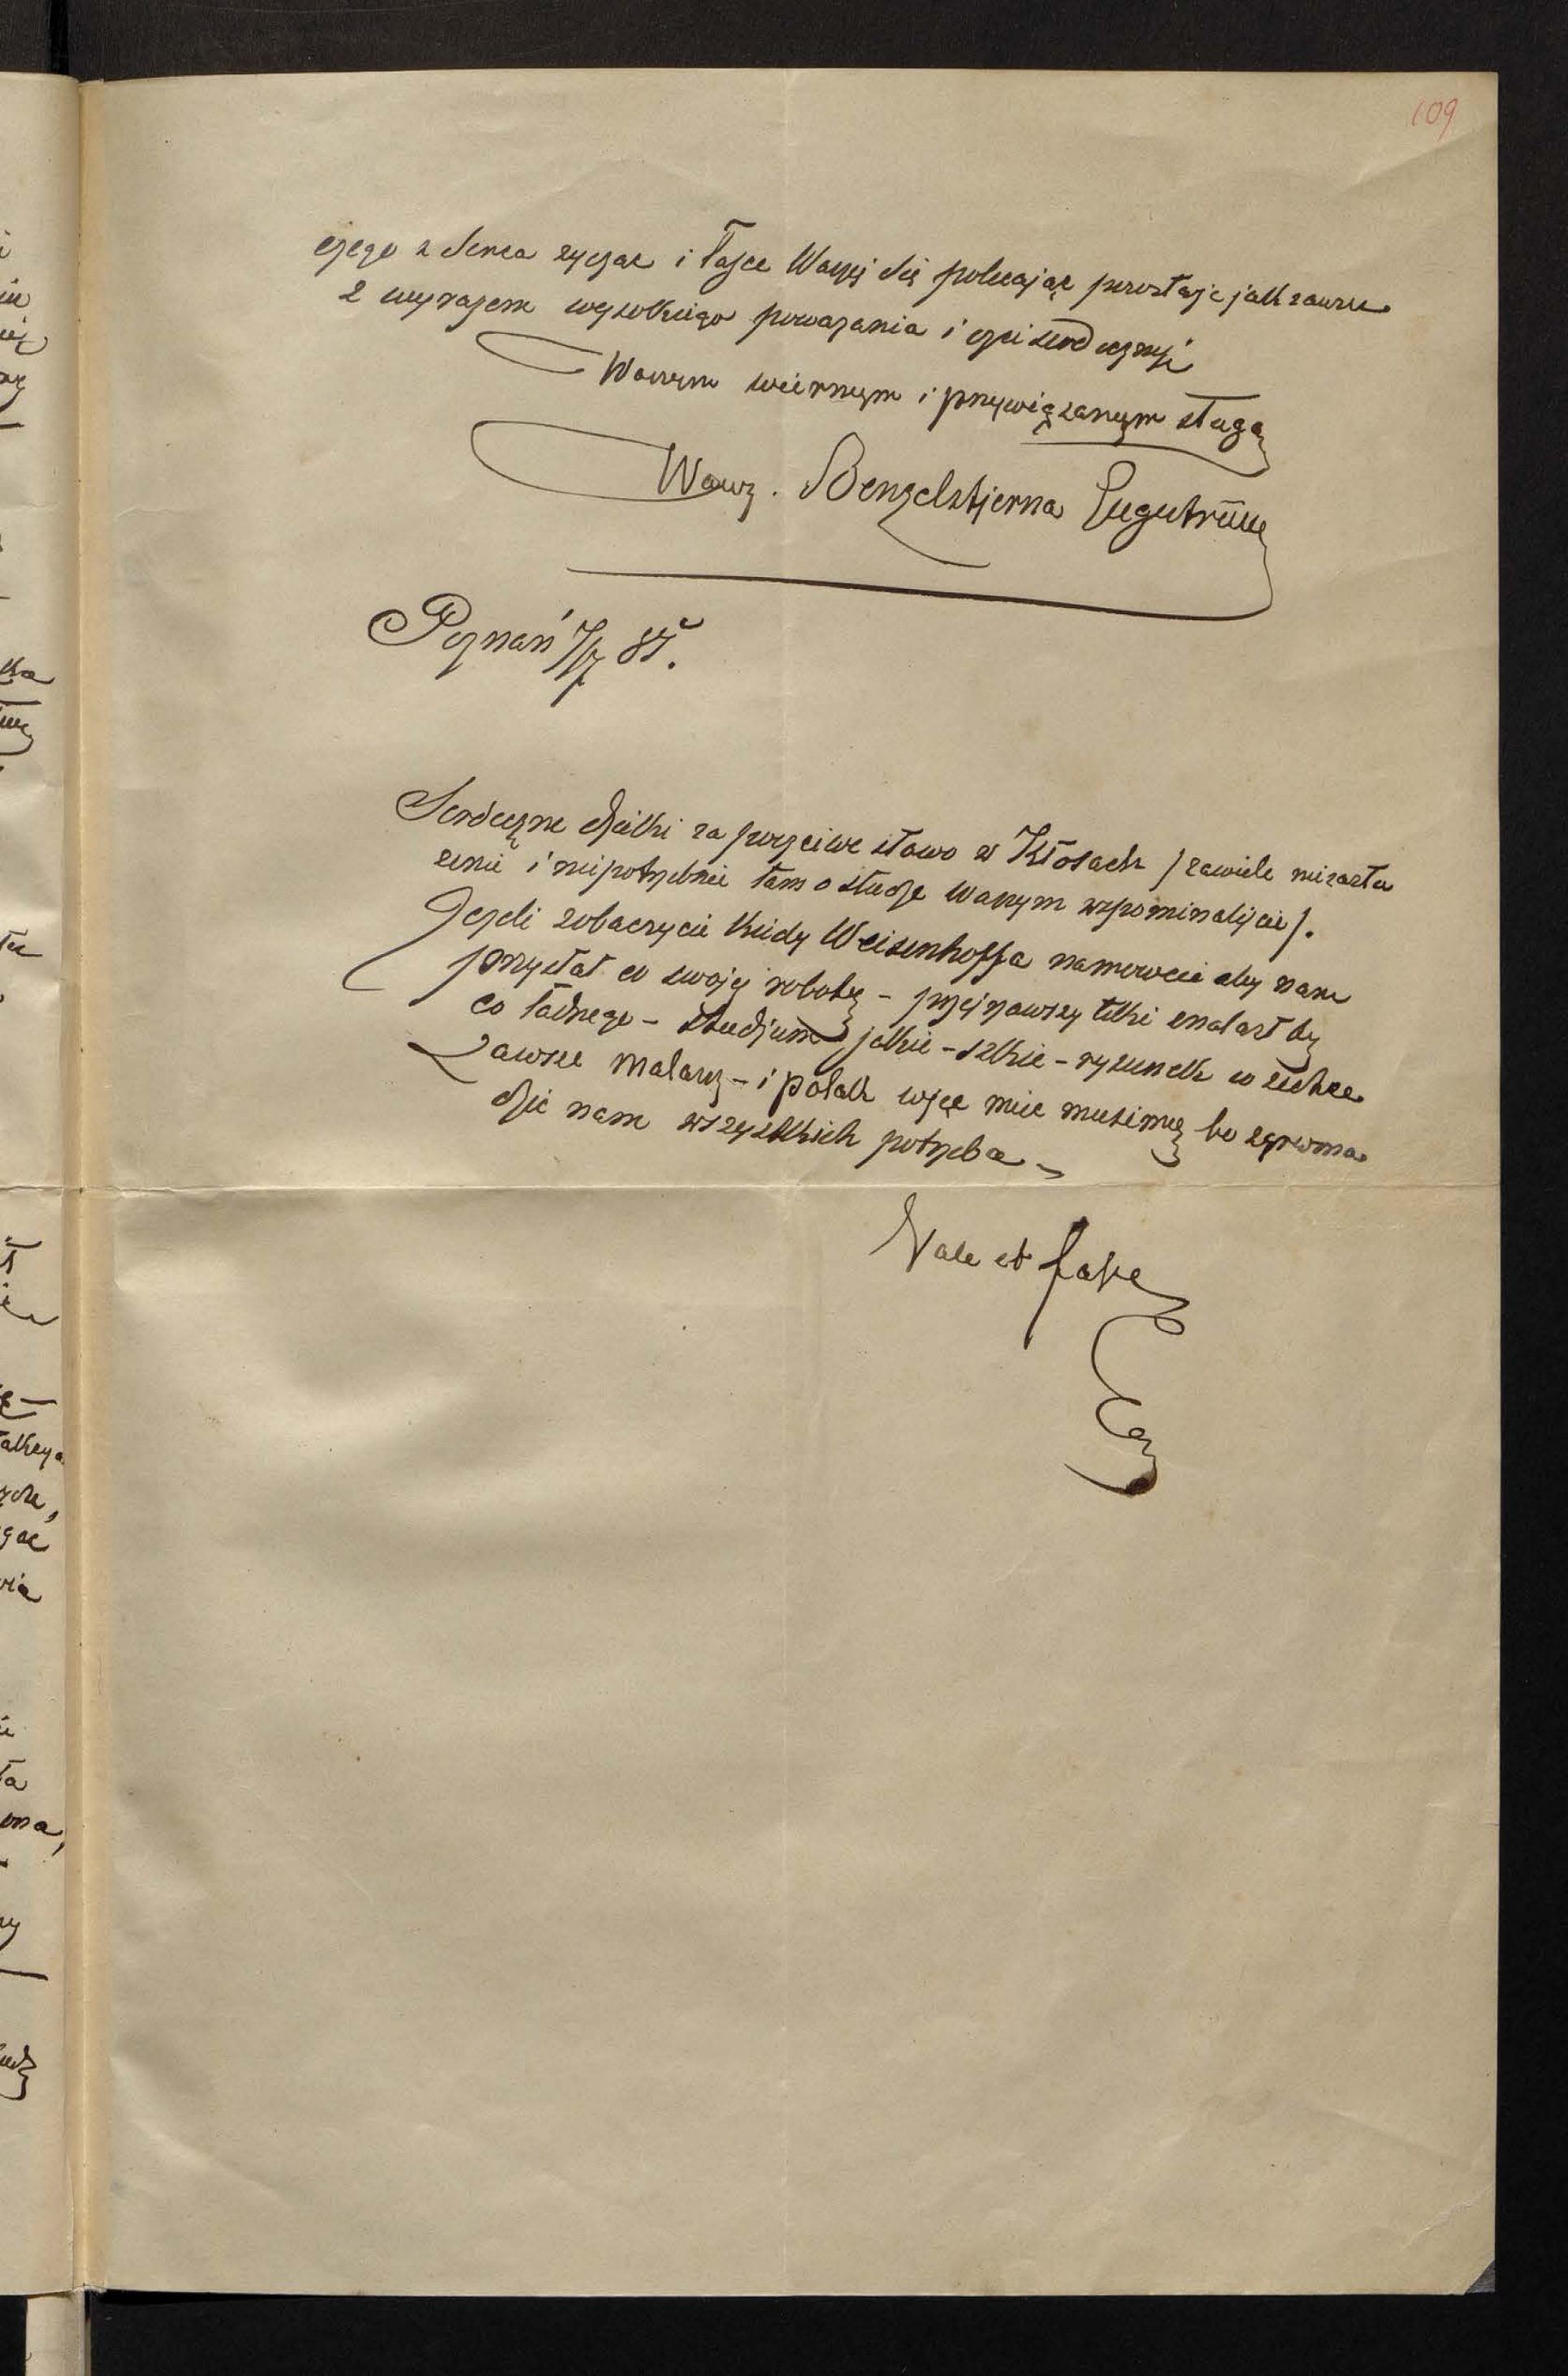 109
czego z Serca życząc i łasce Waszej się polecając pozostaję jak zawsze
z wyrazem wysokiego poważania i czci serdecznej
Waszym wiernym i przywiązanym sługą
Wawrz. Benzelstjerna Engeström
Poznań 7/7 85.
Serdeczne dzięki za poczciwe słowo w Kłosach /zawiele niezasłu
żenie i niepotrzebnie tam o słudze waszym wspominaliście/.
Jeżeli zobaczycie kiedy Weisenhoffa namówcie aby nam
przysłał co swojej roboty – przejrzawszy teki znalazłby
co ładnego – studjum jakie – szkic – rysunek
Zawsze malarz – i polak więc mieć musimy bo
dzić nam wszystkich potrzeba –
Vale et fave